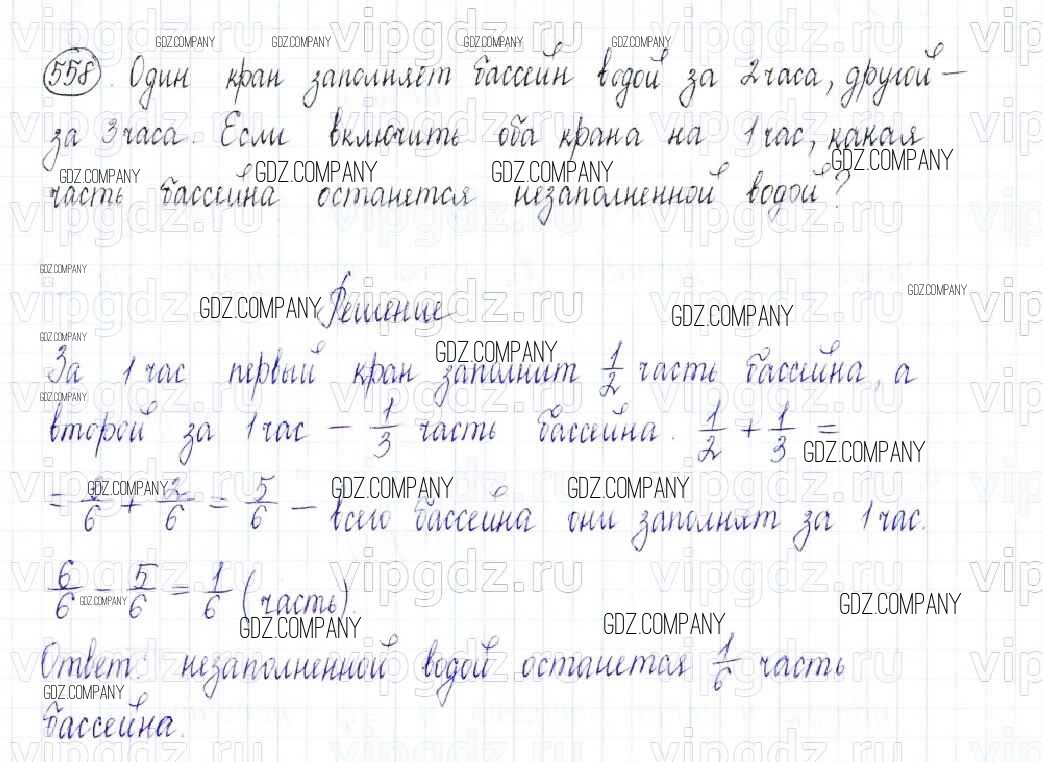 GDZ.COMPANY GDZ.COMPANY GDZ.COMPANY GDZ.COMPANY
558. Один кран заполняет бассейн водой за 2 часа, другой –
за 3 часа. Если включить оба крана на 1 час, какая
GDZ.COMPANY GDZ.COMPANY GDZ.COMPANY GDZ.COMPANY
часть бассейна останется незаполненной водой?
vipgdz.ru vipgdz.ru vipgdz.ru
GDZ.COMPANY
GDZ.COMPANY Решение GDZ.COMPANY GDZ.COMPANY
GDZ.COMPANY GDZ.COMPANY
За 1 час первый кран заполнит 1/2 часть бассейна, а
GDZ.COMPANY
второй за 1 час – 1/3 часть бассейна. 1/2 + 1/3 =
GDZ.COMPANY
GDZ.COMPANY GDZ.COMPANY GDZ.COMPANY
= 3/6 + 2/6 = 5/6 – всего бассейна они заполнят за 1 час.
vipgdz.ru vipgdz.ru vipgdz.ru
6/6 – 5/6 = 1/6 (часть).
GDZ.COMPANY GDZ.COMPANY GDZ.COMPANY GDZ.COMPANY
Ответ: незаполненной водой останется 1/6 часть
GDZ.COMPANY
бассейна.
vipgdz.ru vipgdz.ru vipgdz.ru